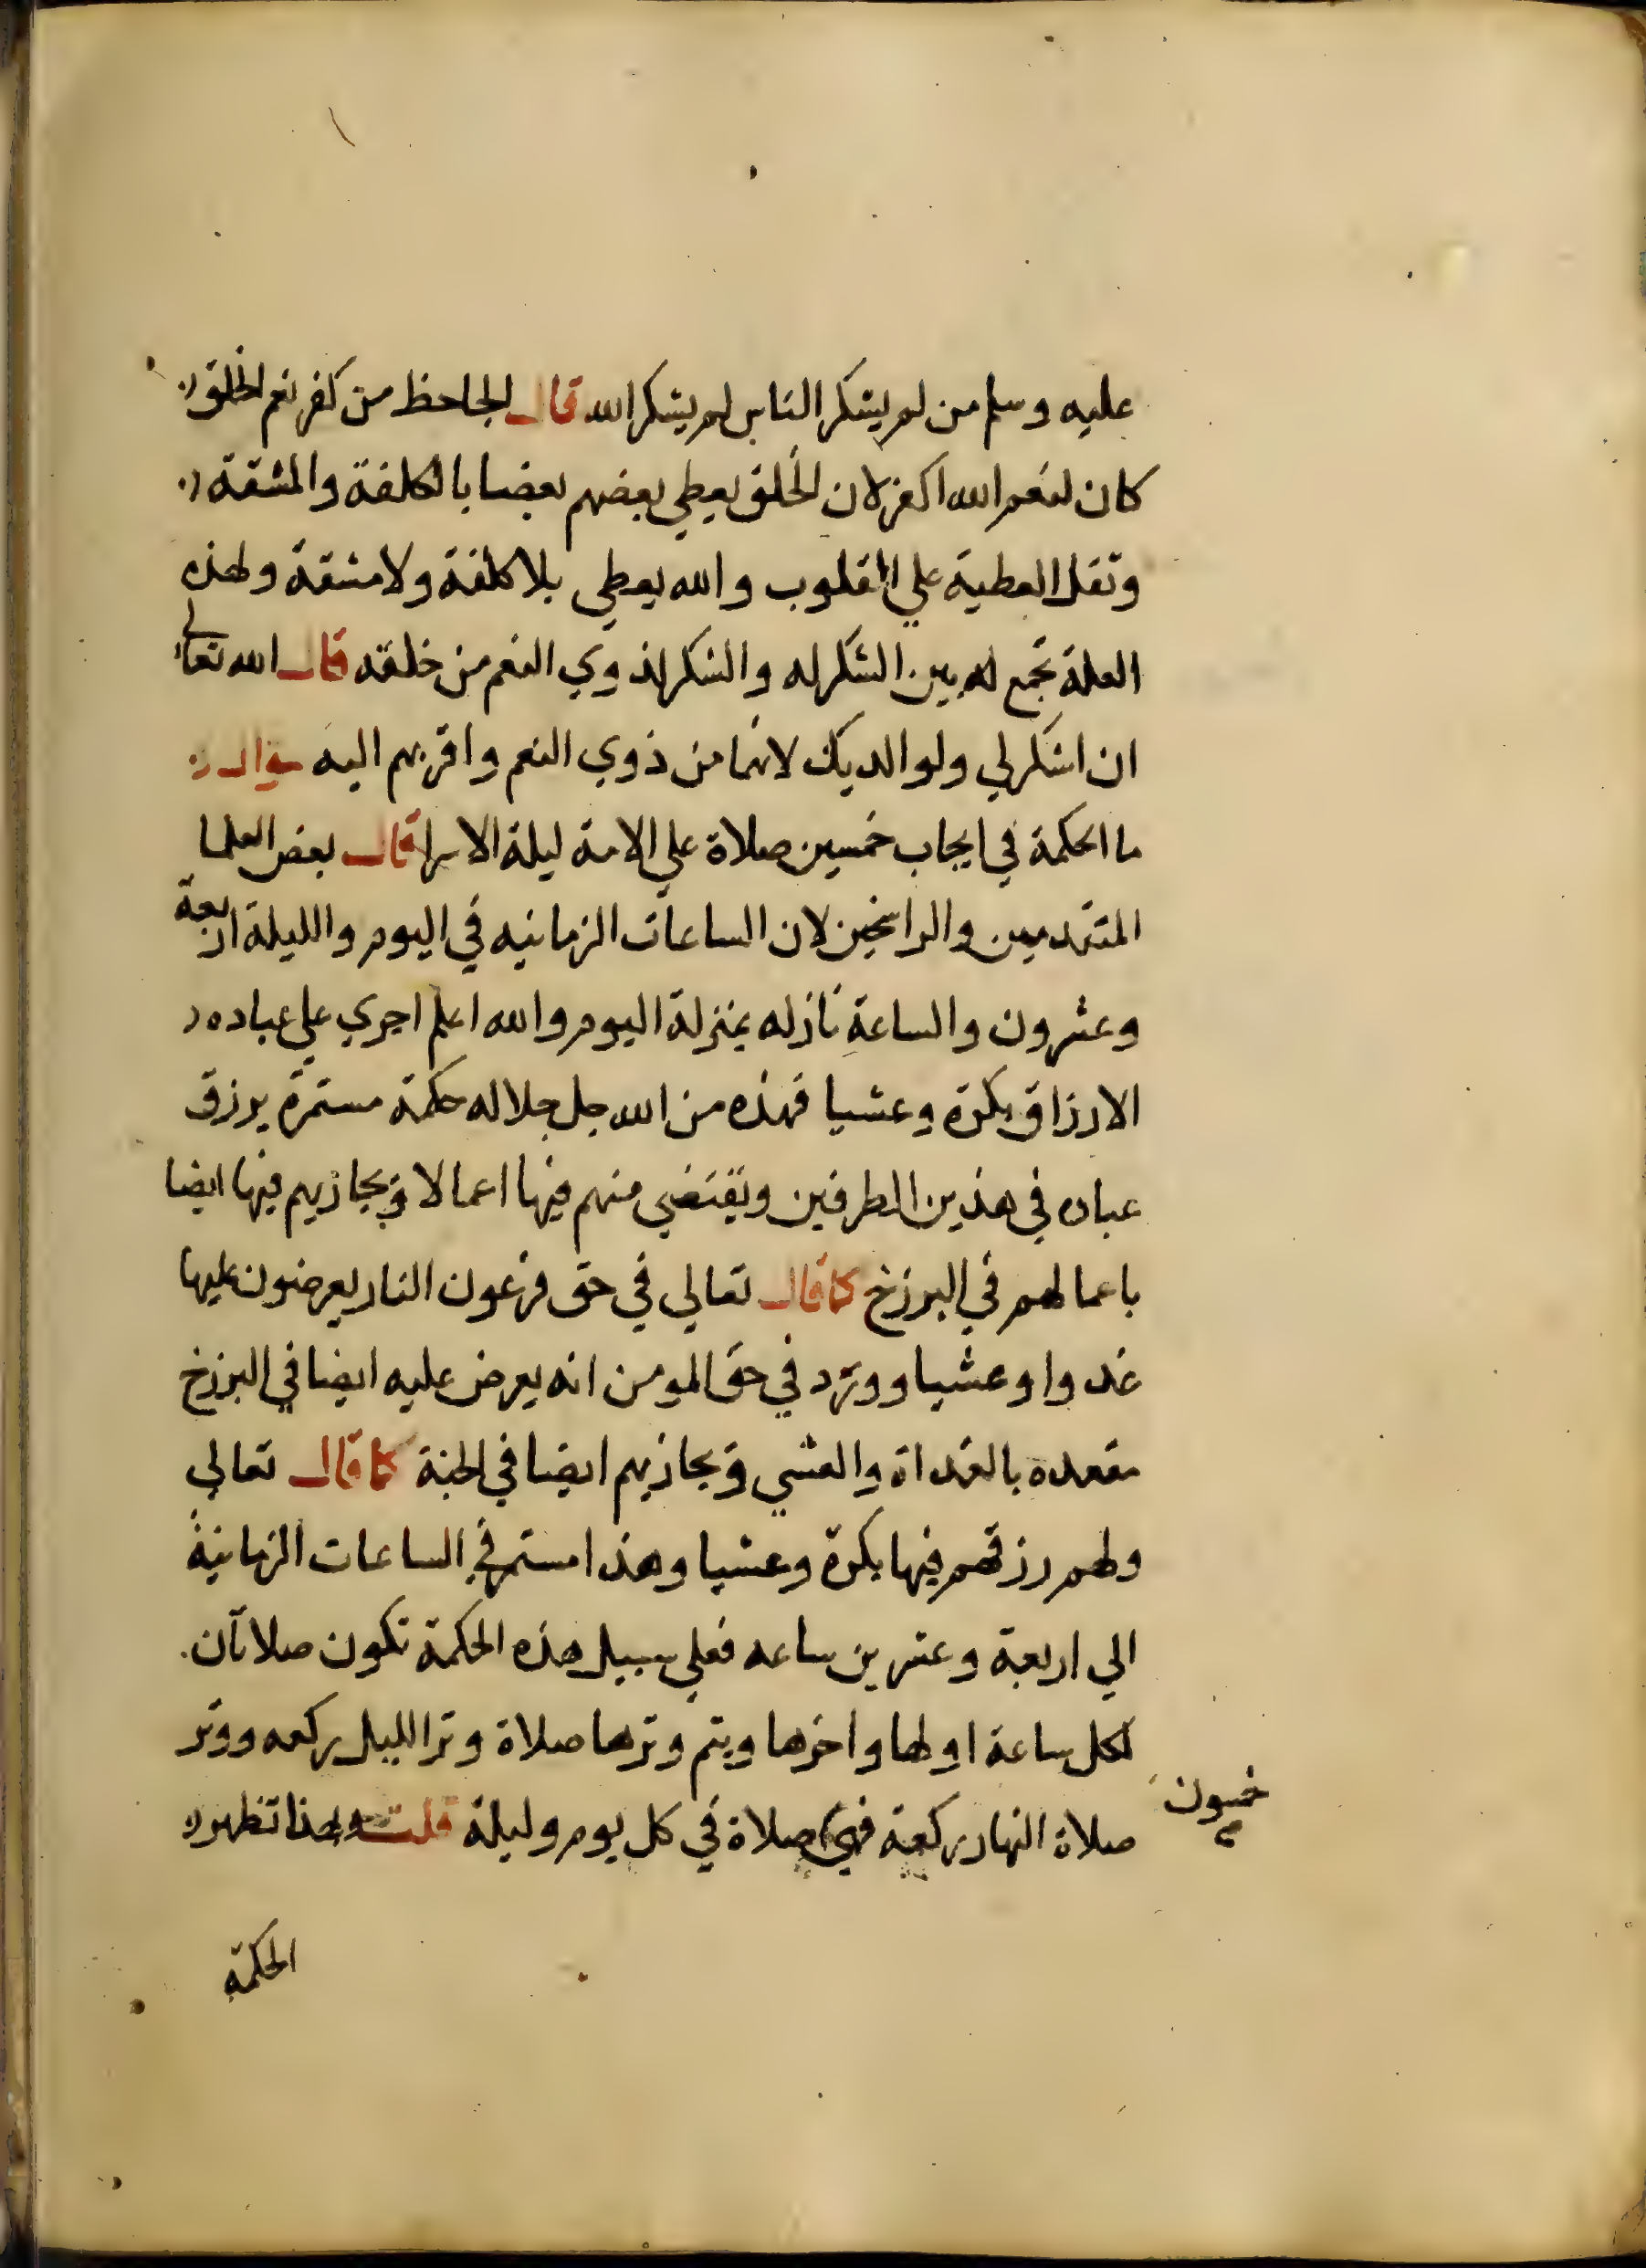 عليه وسلم من لم يشكر الناس لم يشكر الله قال الجاحظ من كفر نعم الخلق
كان لنعم الله اكفر لان الخلق يعطي بعضهم بعضا بالكلفة والمشقة
وثقل العطية علي القلوب والله يعطي بلا كلفة ولا مشقة ولهذه
العلة تجمع له بين الشكر له والشكر لذوي النعم من خلقه قال الله تعالي
ان اشكر لي ولوالديك لانهما من ذوي النعم واقربهم اليه سوال
ما الحكمة في ايجاب خمسين صلاة علي الامة ليلة الاسرا قال بعض العلما
المتقدمين والراسخين لان الساعات الزمانيه في اليوم والليلة اربعة
وعشرون والساعة نازله بمنزلة اليوم والله اعلم اجري علي عباده
الارزاق بكرة وعشيا فهذه من الله جل جلاله حكمة مستمرة يرزق
عباده في هذين الطرفين ويقتضي منهم فيها اعمالا ويجازيهم فيها ايضا
باعمالهم في البرزخ كما قال تعالي في حق فرعون النار يعرضون عليها
غدوا وعشيا وورد في حق المومن انه يعرض عليه ايضا في البرزخ
مقعده بالغداة والعشي ويجازيهم ايضا في الجنة كما قال تعالي
ولهم رزقهم فيها بكرة وعشيا وهذا مستمر في الساعات الزمانية
الي اربعة وعشرين ساعه فعلي سبيل هذه الحكمة تكون صلاتان
لكل ساعة اولها واخرها ويتم وترها صلاة وتر الليل ركعه ووتر
صلاة النهار ركعة فهي صلاة في كل يوم وليلة قلت وبهذا تظهر
خمسون
الحكمة